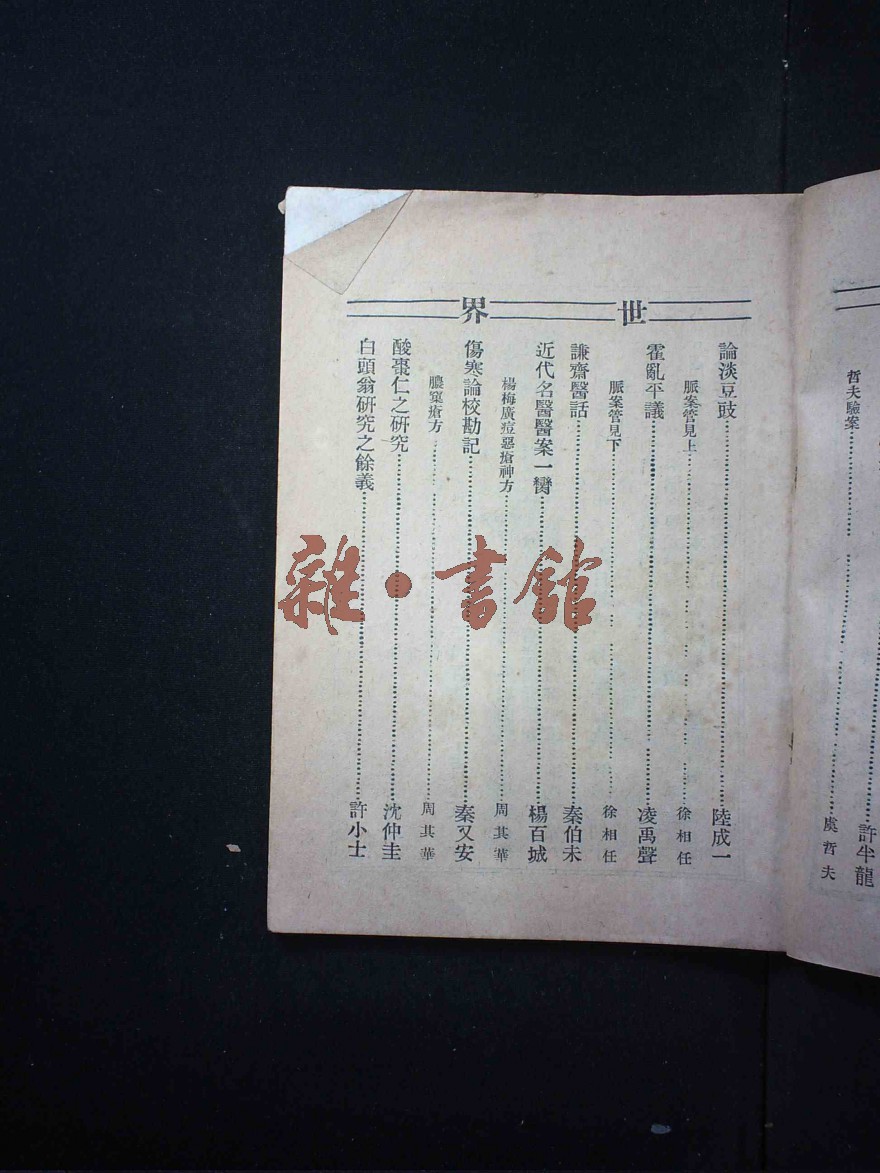 哲夫驗案……虞哲夫
許半龍
世界
論淡豆豉……陸成一
脈案管見上……徐相任
霍亂平議……凌禹聲
脈案管見下……徐相任
謙齋醫話……秦伯未
近代名醫醫案一臠……楊百城
楊梅廣痘惡瘡神方……周其華
傷寒論校勘記……秦又安
膿窠瘡方……周其華
酸棗仁之研究……沈仲圭
白頭翁研究之餘義……許小士
雜·書館